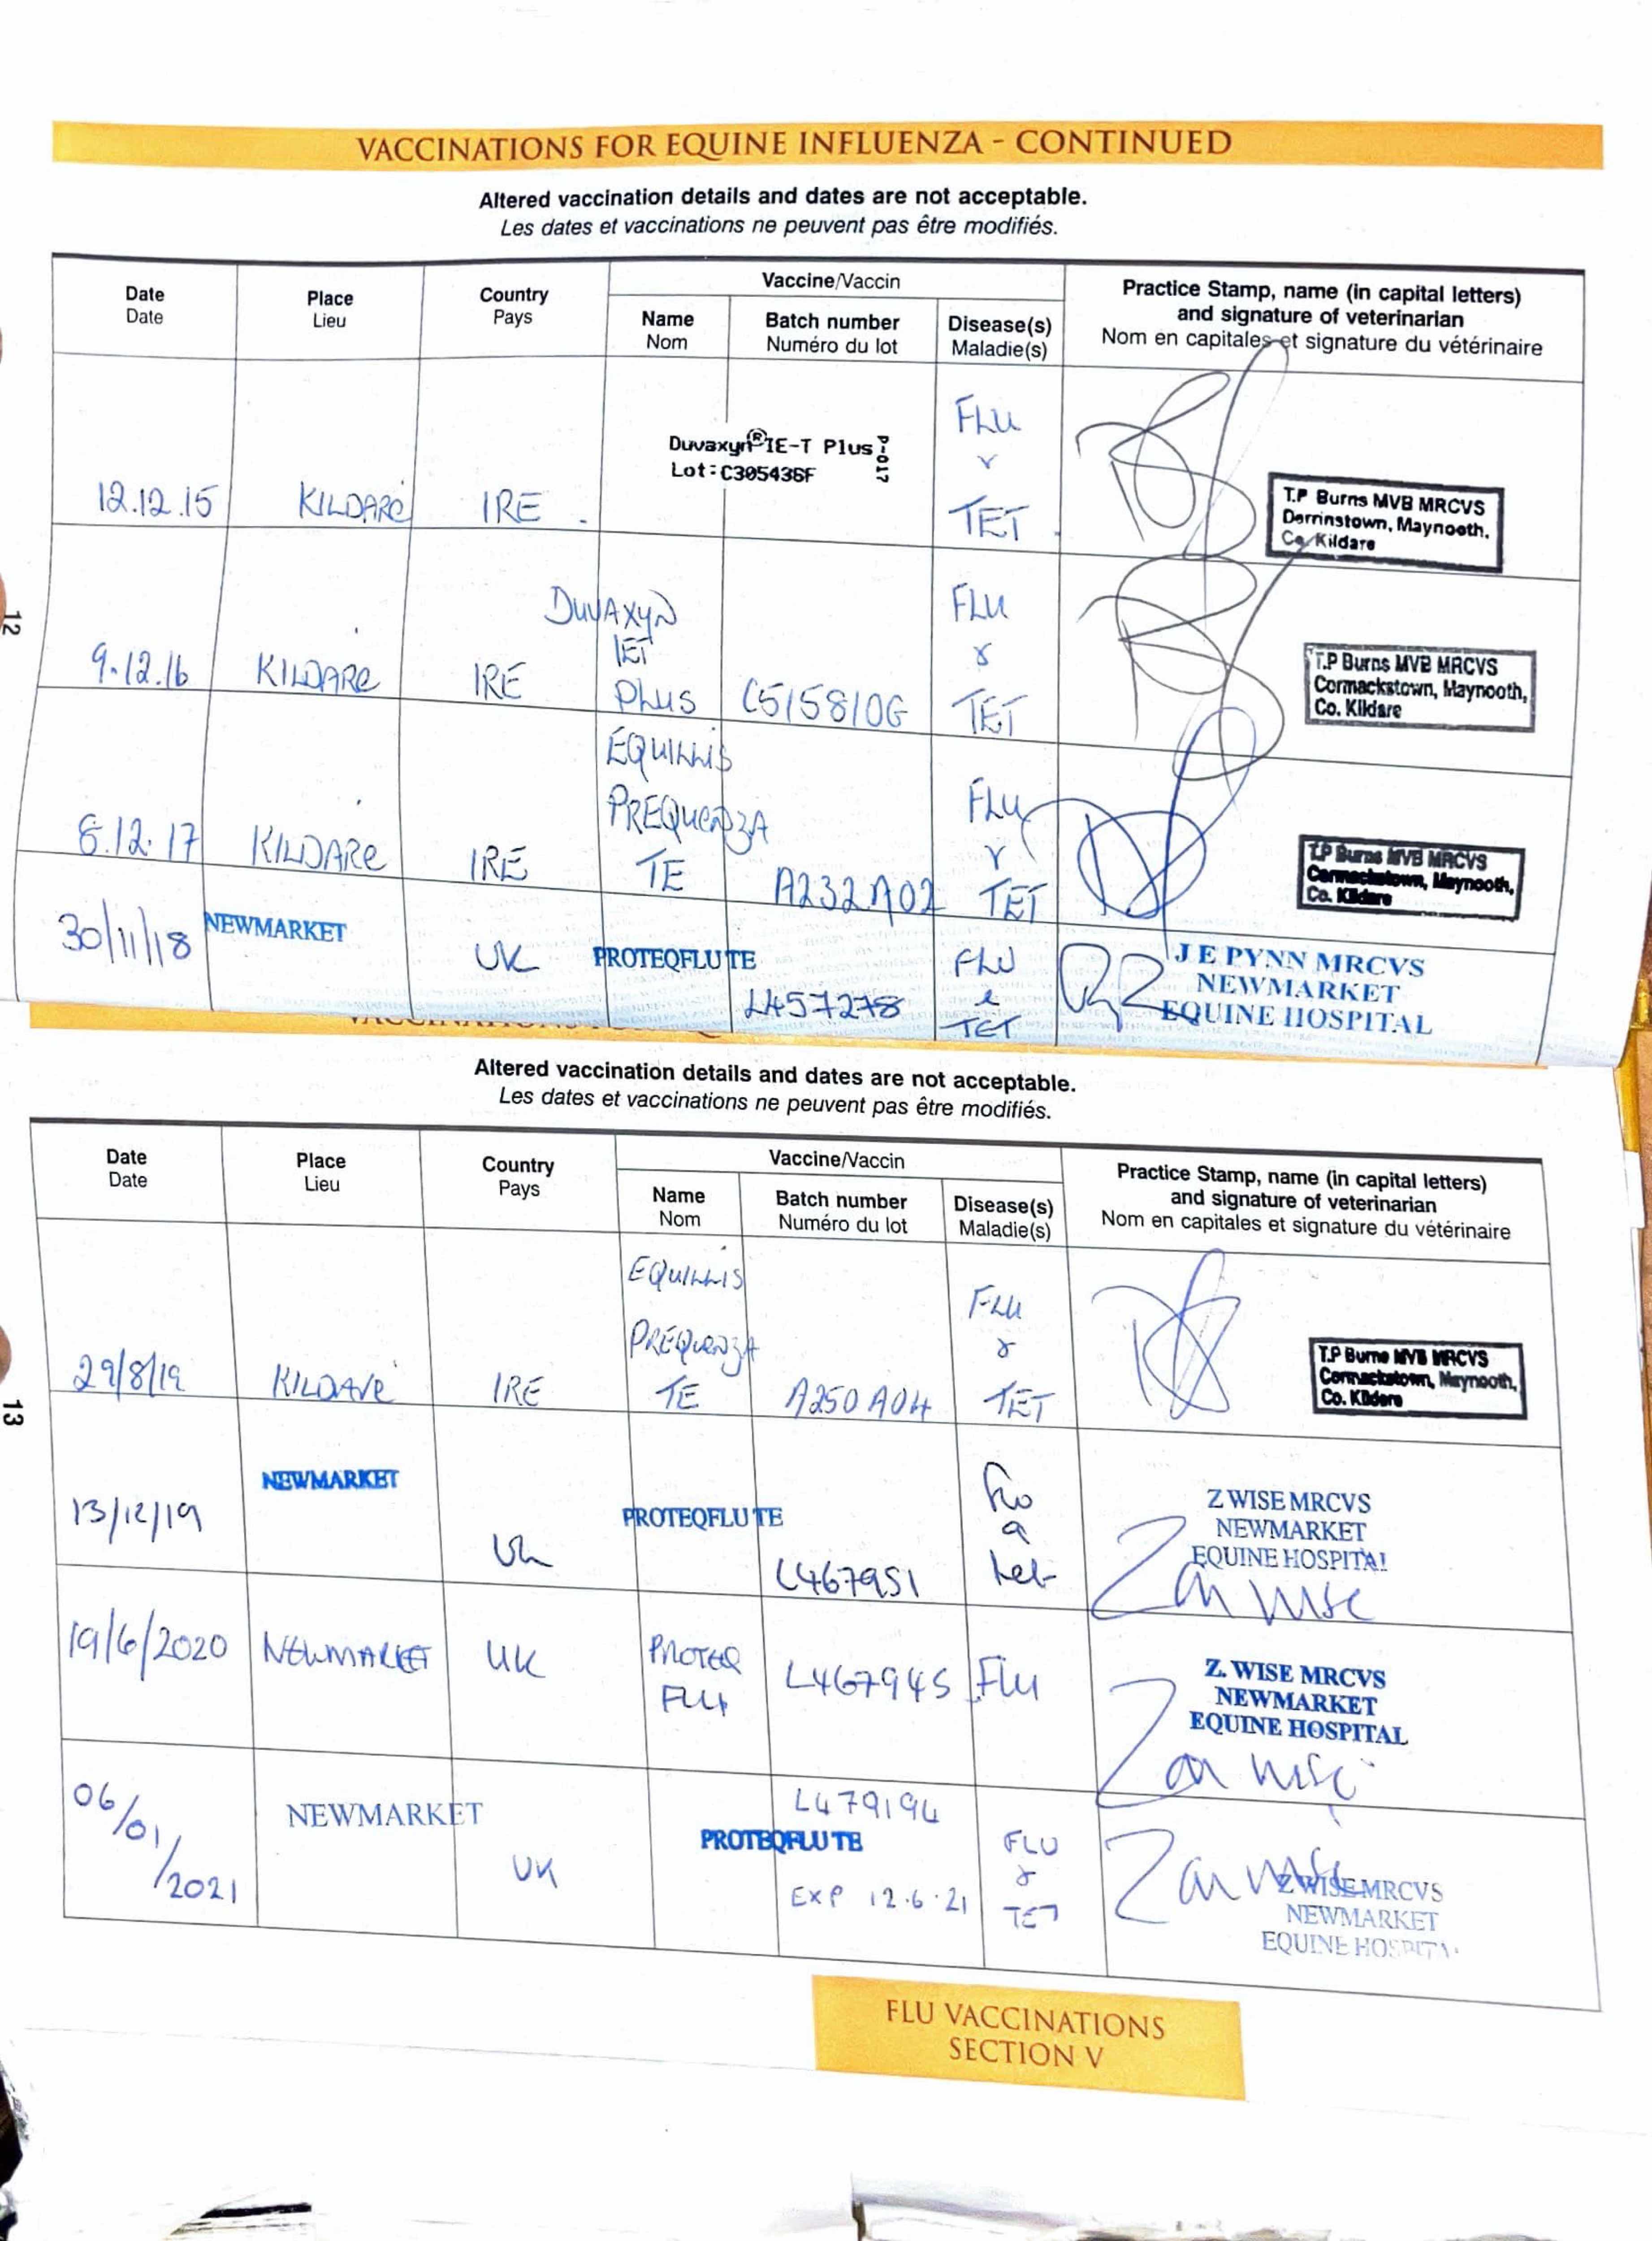 VACCINATIONS FOR EQUINE INFLUENZA - CONTINUED
Altered vaccination details and dates are not acceptable.
Les dates et vaccinations ne peuvent pas être modifiés.
Date
Date
Place
Lieu
Country
Pays
Vaccine/Vaccin
Name
Nom
Batch number
Numéro du lot
Disease(s)
Maladie(s)
Practice Stamp, name (in capital letters)
and signature of veterinarian
Nom en capitales et signature du vétérinaire
12.12.15
KILDARE
IRE
Duvaxyn® IE-T Plus
Lot:C305436F
P-017
FLU
&
TET
T.P Burns MVB MRCVS
Derrinstown, Maynooth,
Co. Kildare
9.12.16
KILDARE
IRE
DUVAXYN
IET
Plus
C515810G
FLU
&
TET
T.P Burns MVB MRCVS
Cormackstown, Maynooth,
Co. Kildare
8.12.17
KILDARE
IRE
EQUILLIS
PREQUENZA
TE
A232A02
FLU
&
TET
T.P Burns MVB MRCVS
Cormackstown, Maynooth,
Co. Kildare
30/11/18
NEWMARKET
UK
PROTEQFLU TE
L457278
FLU
&
TET
J E PYNN MRCVS
NEWMARKET
EQUINE HOSPITAL
12
Altered vaccination details and dates are not acceptable.
Les dates et vaccinations ne peuvent pas être modifiés.
Date
Date
Place
Lieu
Country
Pays
Vaccine/Vaccin
Name
Nom
Batch number
Numéro du lot
Disease(s)
Maladie(s)
Practice Stamp, name (in capital letters)
and signature of veterinarian
Nom en capitales et signature du vétérinaire
29/8/19
KILDARE
IRE
EQUILLIS
PREQUENZA
TE
A250A04
FLU
&
TET
T.P Burns MVB MRCVS
Cormackstown, Maynooth,
Co. Kildare
13/12/19
NEWMARKET
UK
PROTEQFLU TE
L467951
Flu
&
tet
Z WISE MRCVS
NEWMARKET
EQUINE HOSPITAL
19/6/2020
NEWMARKET
UK
PROTEQ
FLU
L467945
Flu
Z. WISE MRCVS
NEWMARKET
EQUINE HOSPITAL
06/01/2021
NEWMARKET
UK
L479194
PROTEQFLU TE
EXP 12.6.21
FLU
&
TET
Z WISE MRCVS
NEWMARKET
EQUINE HOSPITA
13
FLU VACCINATIONS
SECTION V